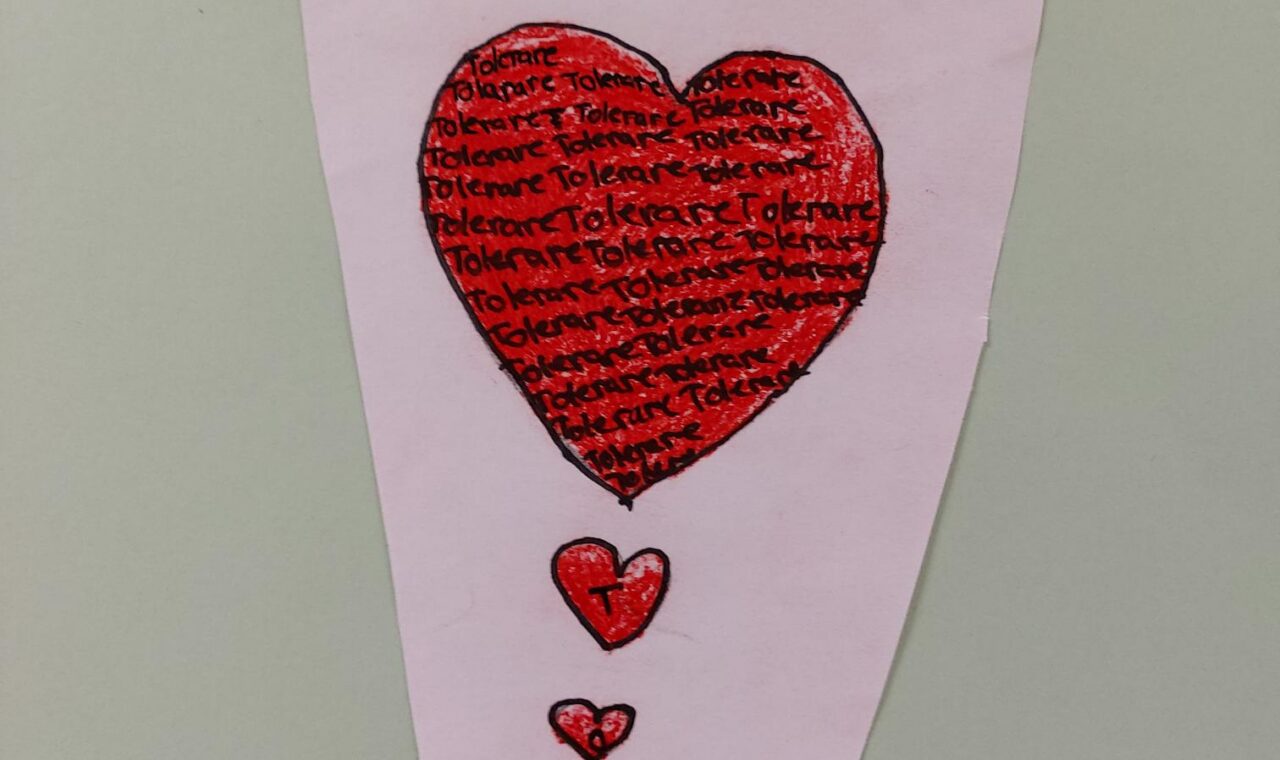 Tolerare
Tolarare Tolerare Tolerare
Tolerare Tolerare Tolerare
Tolerare Tolerare Tolerare
Tolerare Tolerare Tolerare
Tolerare Tolerare Tolerare
Tolerare Tolerare Tolerare
Tolerare Tolerare Tolerare
Tolerare Toleranz Tolerare
Tolerare Tolerare
Tolerare Tolerare
Tolerare Tolerare
Tolerare
T
o